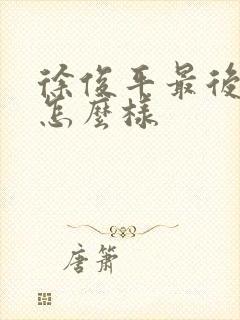 徐俊平最後
怎麼樣
唐簫